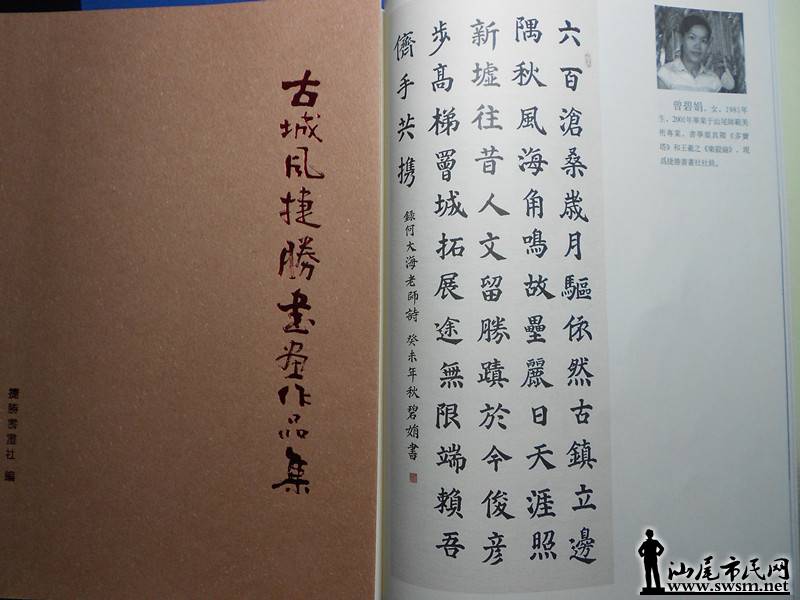 古城风捷勝書画作品集
捷勝書畫社 編
六百滄桑歲月驅依然古鎮立邊
隅秋風海角鳴故壘麗日天涯照
新墟往昔人文留勝蹟於今俊彦
步高梯罾城拓展途無限端賴吾
儕手共携
錄何大海老師詩 癸未年秋碧娟書
曾碧娟，女，1981年
生，2001年畢業于汕尾師範美
術專業，書學顏真卿《多寶
塔》和王羲之《樂毅論》，現
爲捷勝書畫社社員。
汕尾市民网
www.swsm.net